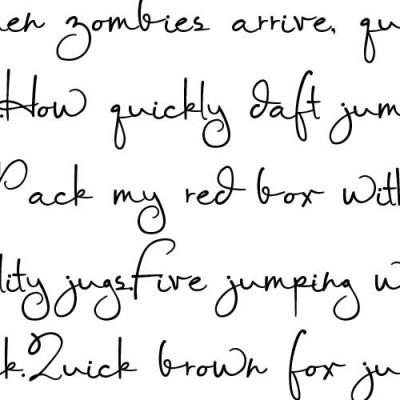 en zombies arrive, qu
.How quickly daft jum
Pack my red box with
lity jugs.Five jumping w
k.Quick brown fox ju